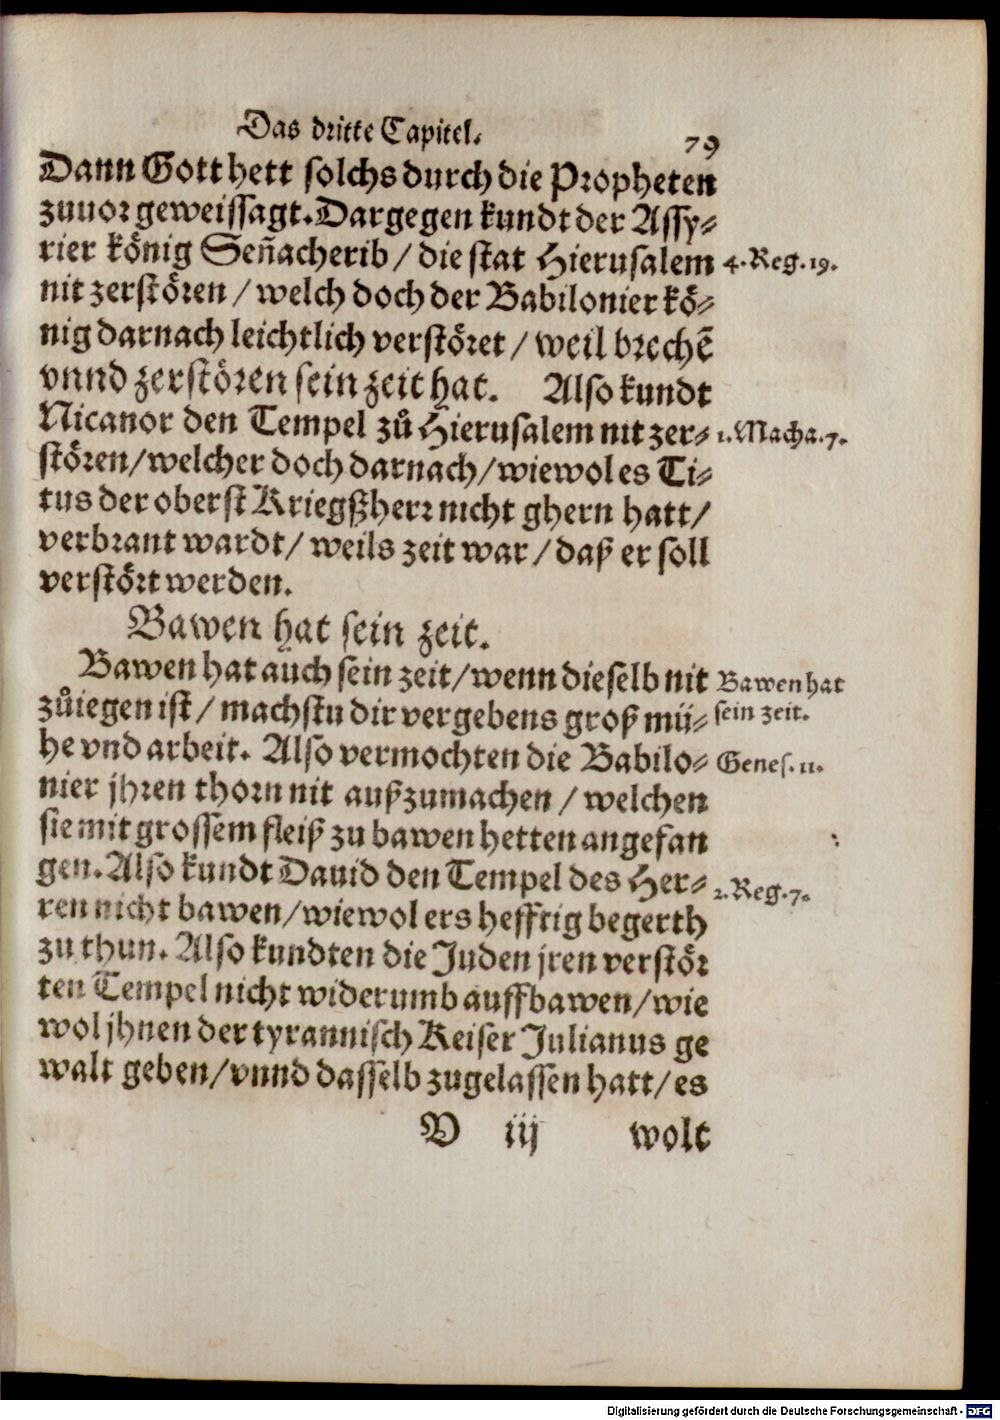 Das dritte Capitel. 79
Dann Gott hett solchs durch die Propheten
zuuor geweissagt. Dargegen kundt der Assy⸗
rier könig Señacherib / die stat Hierusalem
4. Reg. 19.
nit zerstören / welch doch der Babilonier kö⸗
nig darnach leichtlich verstöret / weil brechē
vnnd zerstören sein zeit hat. Also kundt
Nicanor den Tempel zů Hierusalem nit zer⸗
1. Macha. 7.
stören/welcher doch darnach/wiewol es Ti⸗
tus der oberst Kriegßherr nicht ghern hatt/
verbrant wardt/ weils zeit war / daß er soll
verstört werden.
Bawen hat sein zeit.
Bawen hat auch sein zeit/wenn dieselb nit
Bawen hat
sein zeit.
zůiegen ist / machstu dir vergebens groß mü⸗
he vnd arbeit. Also vermochten die Babilo⸗
Genes. 11.
nier jhren thorn nit außzumachen / welchen
sie mit grossem fleiß zu bawen hetten angefan
gen. Also kundt Dauid den Tempel des Her⸗
2. Reg. 7.
ren nicht bawen/wiewol ers hefftig begerth
zu thun. Also kundten die Juden jren verstör
ten Tempel nicht widerumb auffbawen/wie
wol jhnen der tyrannisch Keiser Julianus ge
walt geben/vnnd dasselb zugelassen hatt/es
V iij wolt
Digitalisierung gefördert durch die Deutsche Forschungsgemeinschaft - DFG